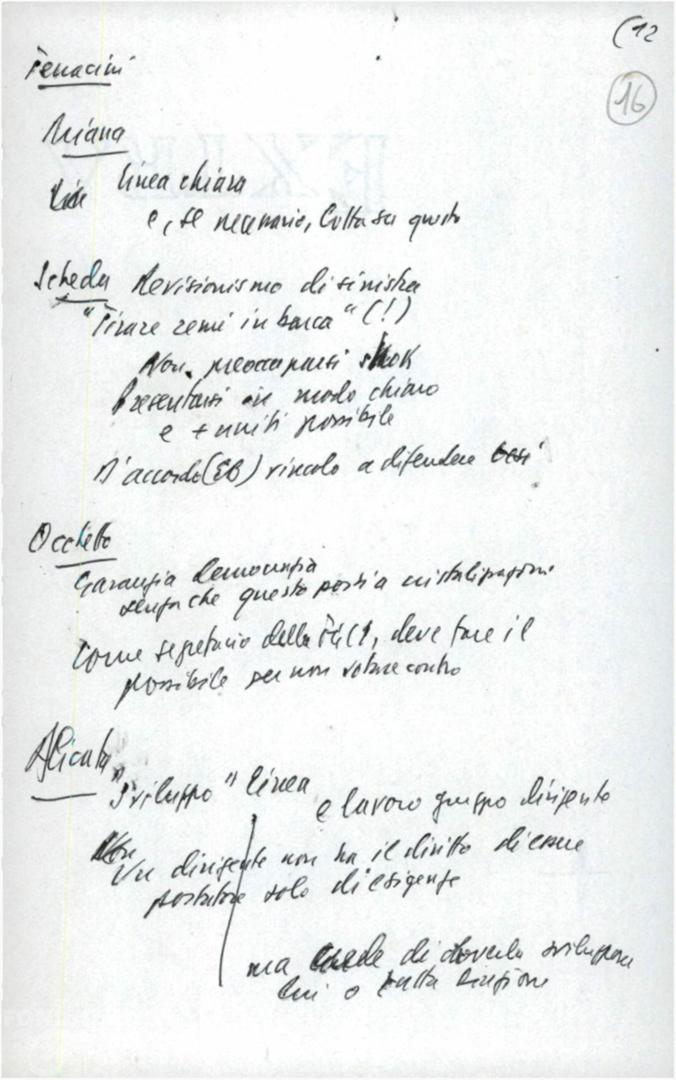 (12
16
Terracini
Miana
linea chiara
e, se necessario, lotta su questo
Scheda Revisionismo di sinistra
"Tirare remi in barca" (!)
Non preoccuparsi shok
Presentarsi in modo chiaro
e + uniti possibile
D'accordo (EB) vincolo a difendere tesi
Occhetto
Garanzia democrazia
senza che questo porti a cristallizzazioni
Come segretario della FGCI, deve fare il
possibile per non votare contro
Alicata
"Sviluppo" linea
e lavoro gruppo dirigente
Un dirigente non ha il diritto di essere
portatore solo di esigenze
ma crede di doverla sviluppare
lui o tutta Direzione